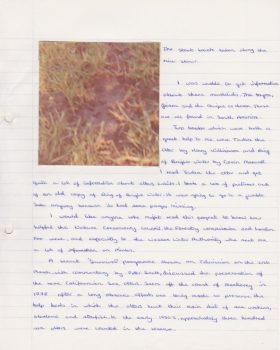 The stoat tracks taken along the
river shore.
I was unable to get information
about these mustelids. The tayra,
grison and the
are all found in South America.
Two books which were both a
great help to me were Tarka the
Otter by Henry Williamson and Ring
of Bright Water by Gavin Maxwell.
I read Tarka the Otter and got
quite a lot of information about otters, which I took a lot of pictures out of
an old copy of Ring of Bright Water it was going to go in a jumble
sale anyway because it had some pages missing.
I would like anyone who might read this project to know how
helpful the Nature Conservancy Council, the Forestry commission and London
Zoo were, and especially to the Wessex Water Authority who sent me
a lot of information on Marten.
A recent "Survival" programme shown on Television on the
March with commentary by Peter Scott, discussed the preservation of the
rare Californian Sea Otter. Seen off the coast of Monterey in
1938 after a long absence. Efforts are being made to preserve the
kelp beds in which the otters find their main diet of sea urchins,
abalone and shellfish. In the early 1950's, approximately three hundred
sea otters were counted in the reserve.